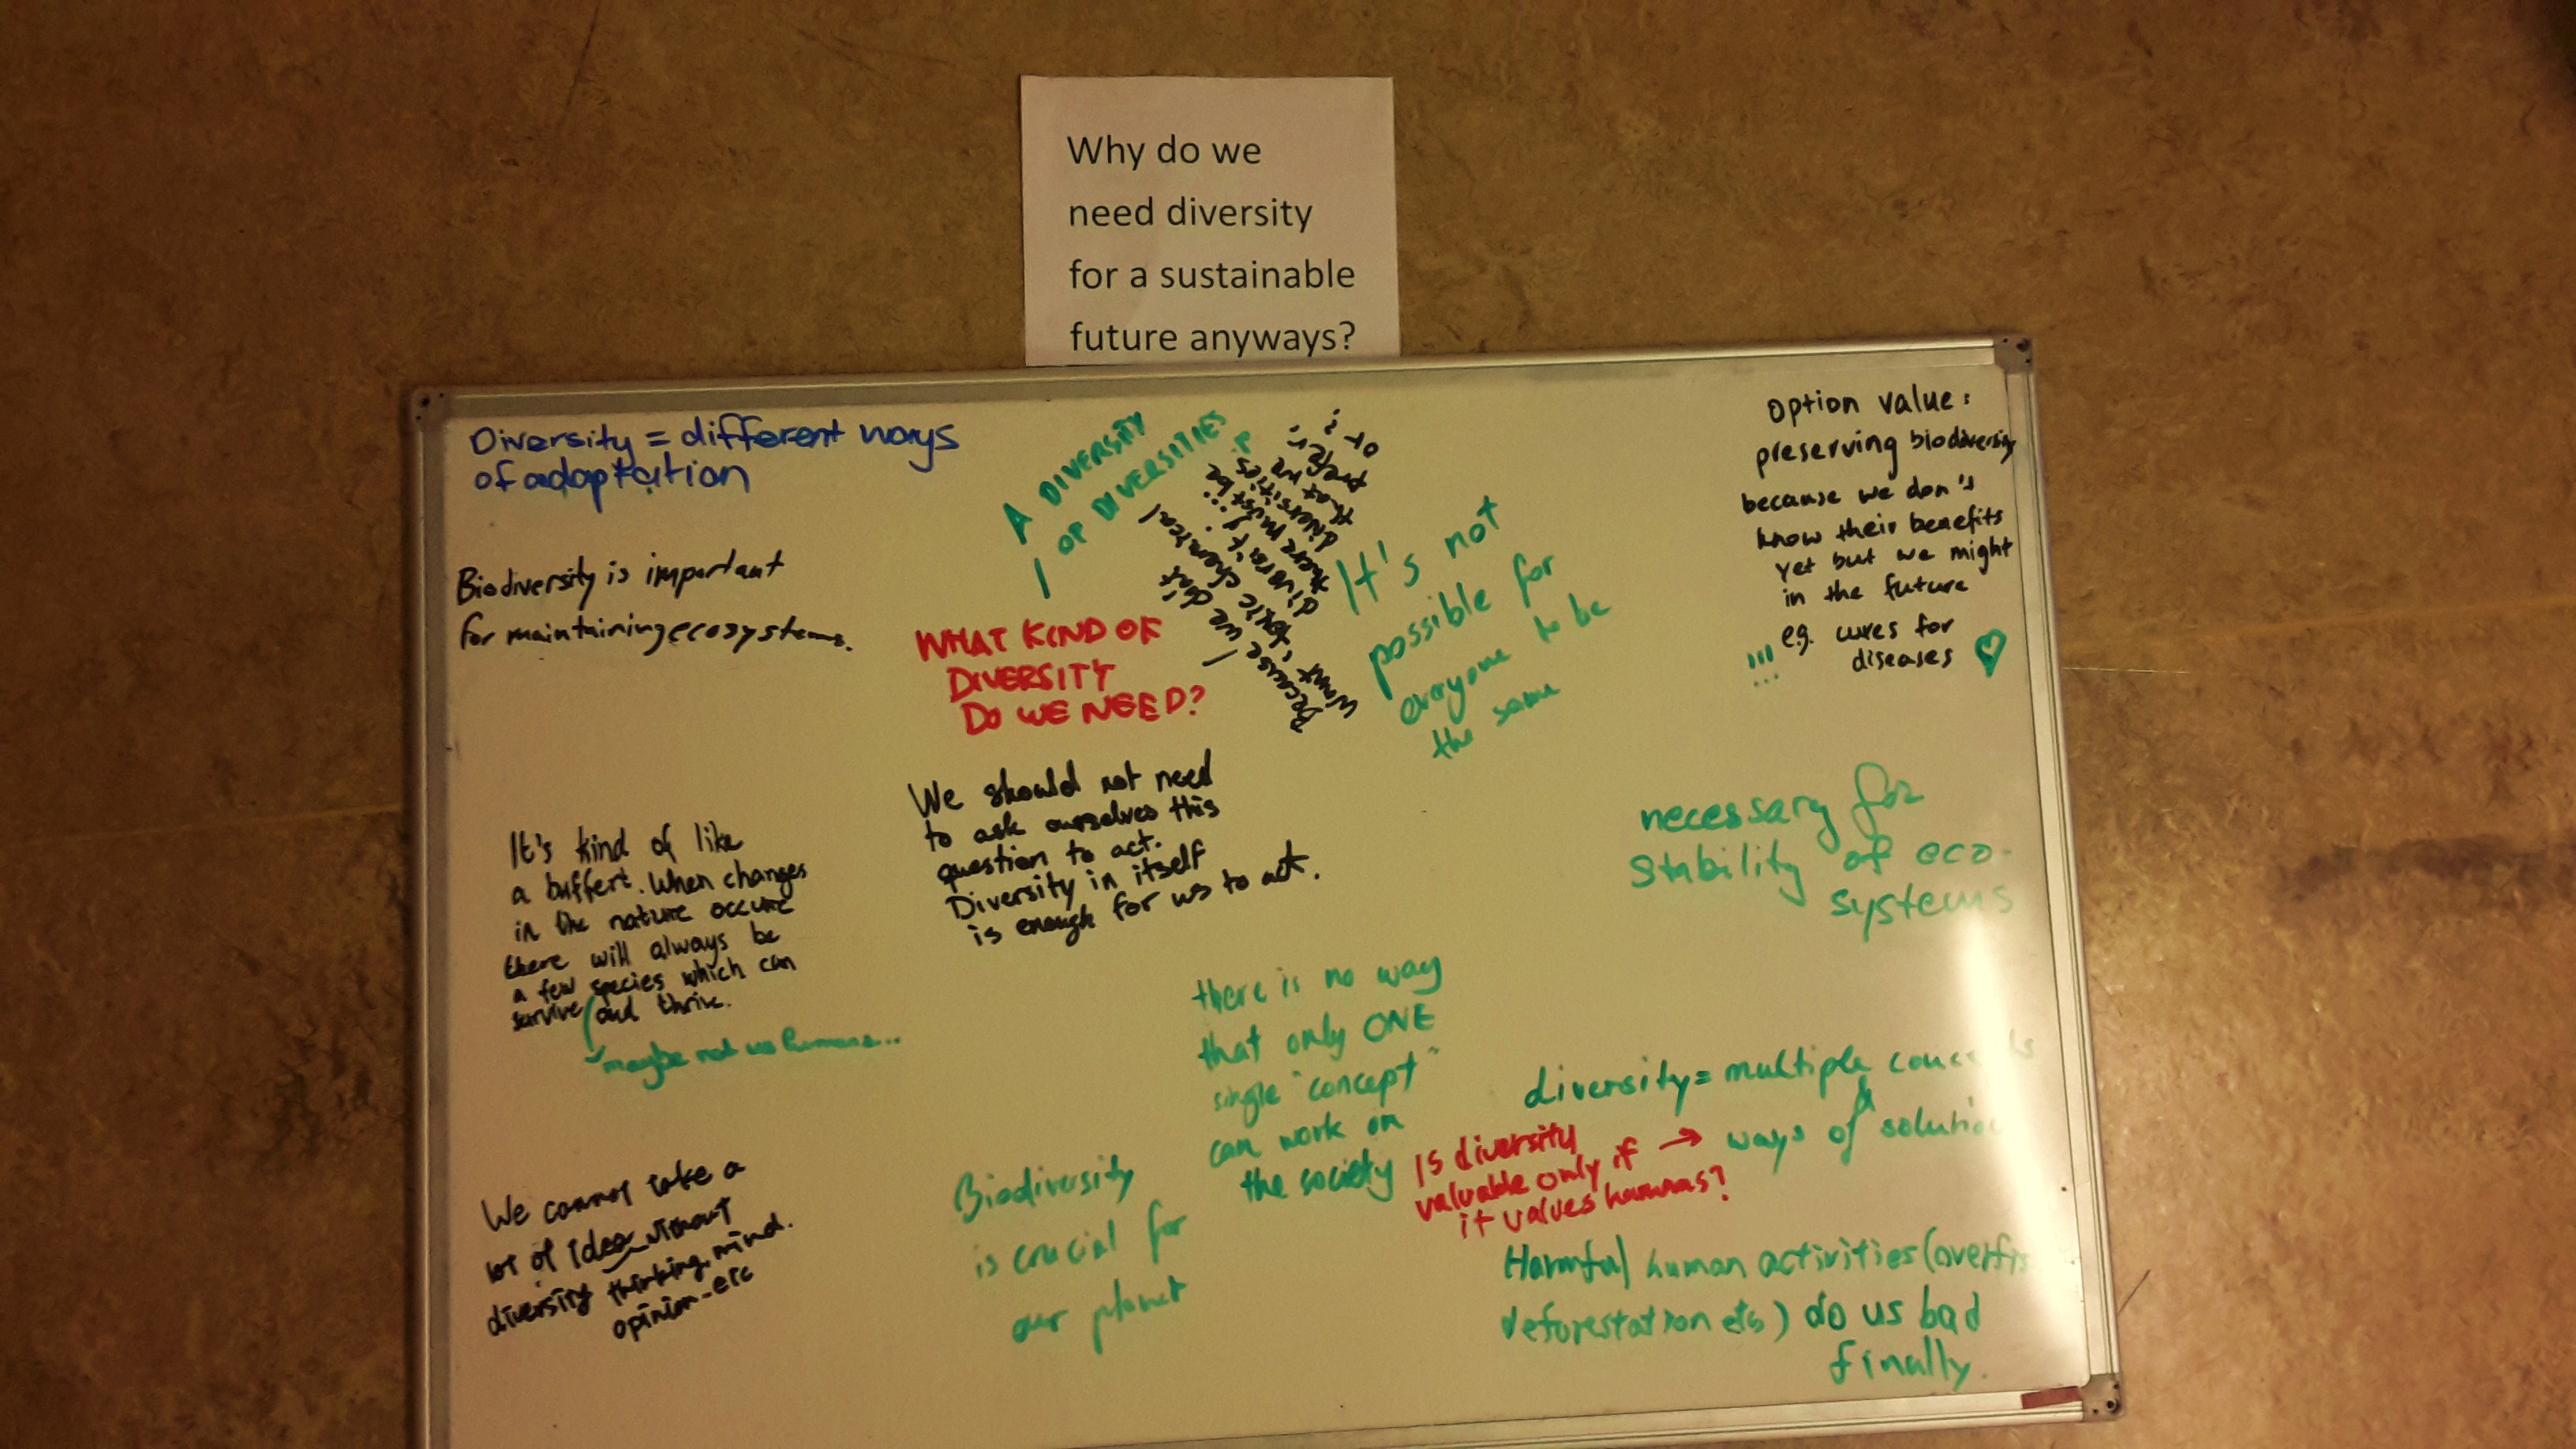 Why do we
need diversity
for a sustainable
future anyways?
Diversity = different ways
of adaptation
Biodiversity is important
for maintaining ecosystems.
It's kind of like
a buffert. When changes
in the nature occure
there will always be
a few species which can
survive and thrive.
maybe not us humans...
We cannot take a
lot of idea without
diversity thinking, mind.
opinion-etc
A DIVERSITY
OF DIVERSITIES
WHAT KIND OF
DIVERSITY
DO WE NEED?
Because we
want
toxic chemical
diversity
there must be
diversities
that we
prefer
or
It's not
possible for
everyone to be
the same
We should not need
to ask ourselves this
question to act.
Diversity in itself
is enough for us to act.
there is no way
that only ONE
single "concept"
can work on
the society
Biodiversity
is crucial for
our planet
Option value:
preserving biodiversity
because we don't
know their benefits
yet but we might
in the future
!!! eg. cures for
diseases
necessary for
stability of eco-
systems
diversity = multiple
& ways of
Is diversity
valuable only if →
it values humans?
Harmful human activities (overfis
deforestation etc) do us bad
finally.